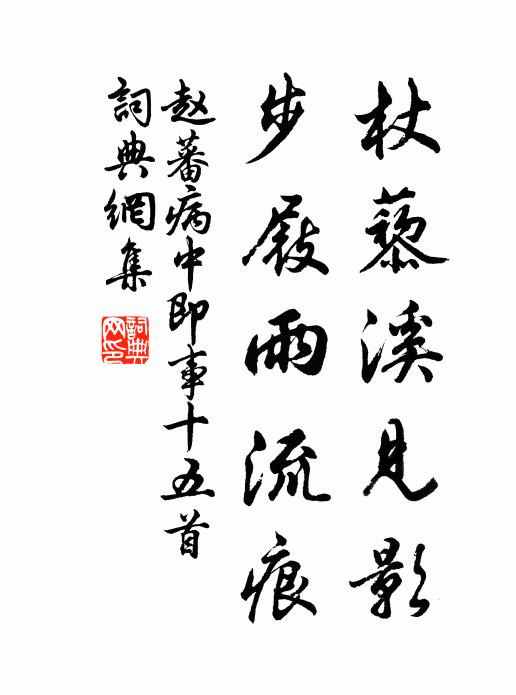 杖藜溪見影
步屐雨流痕
赵蕃病中即事十五首
詞典網集
詞典
网印